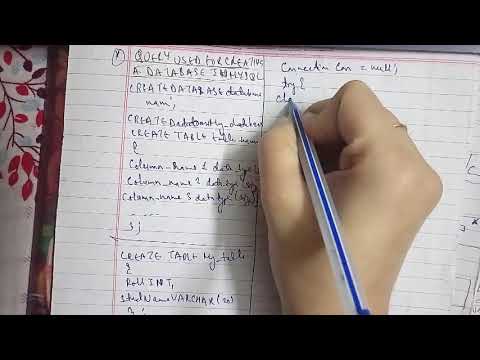 QUERY USED FOR CREATING
A DATABASE IN MYSQL
CREATE DATABASE database
name;
CREATE Database my_database
CREATE TABLE table_name
{
Column-name 1 data type
Column_name 2 data type
Column_name 3 data type
- - - -
};
CREATE TABLE My_table
{
Roll INT,
StudName VARCHAR (20)
Connection Con = null;
try {